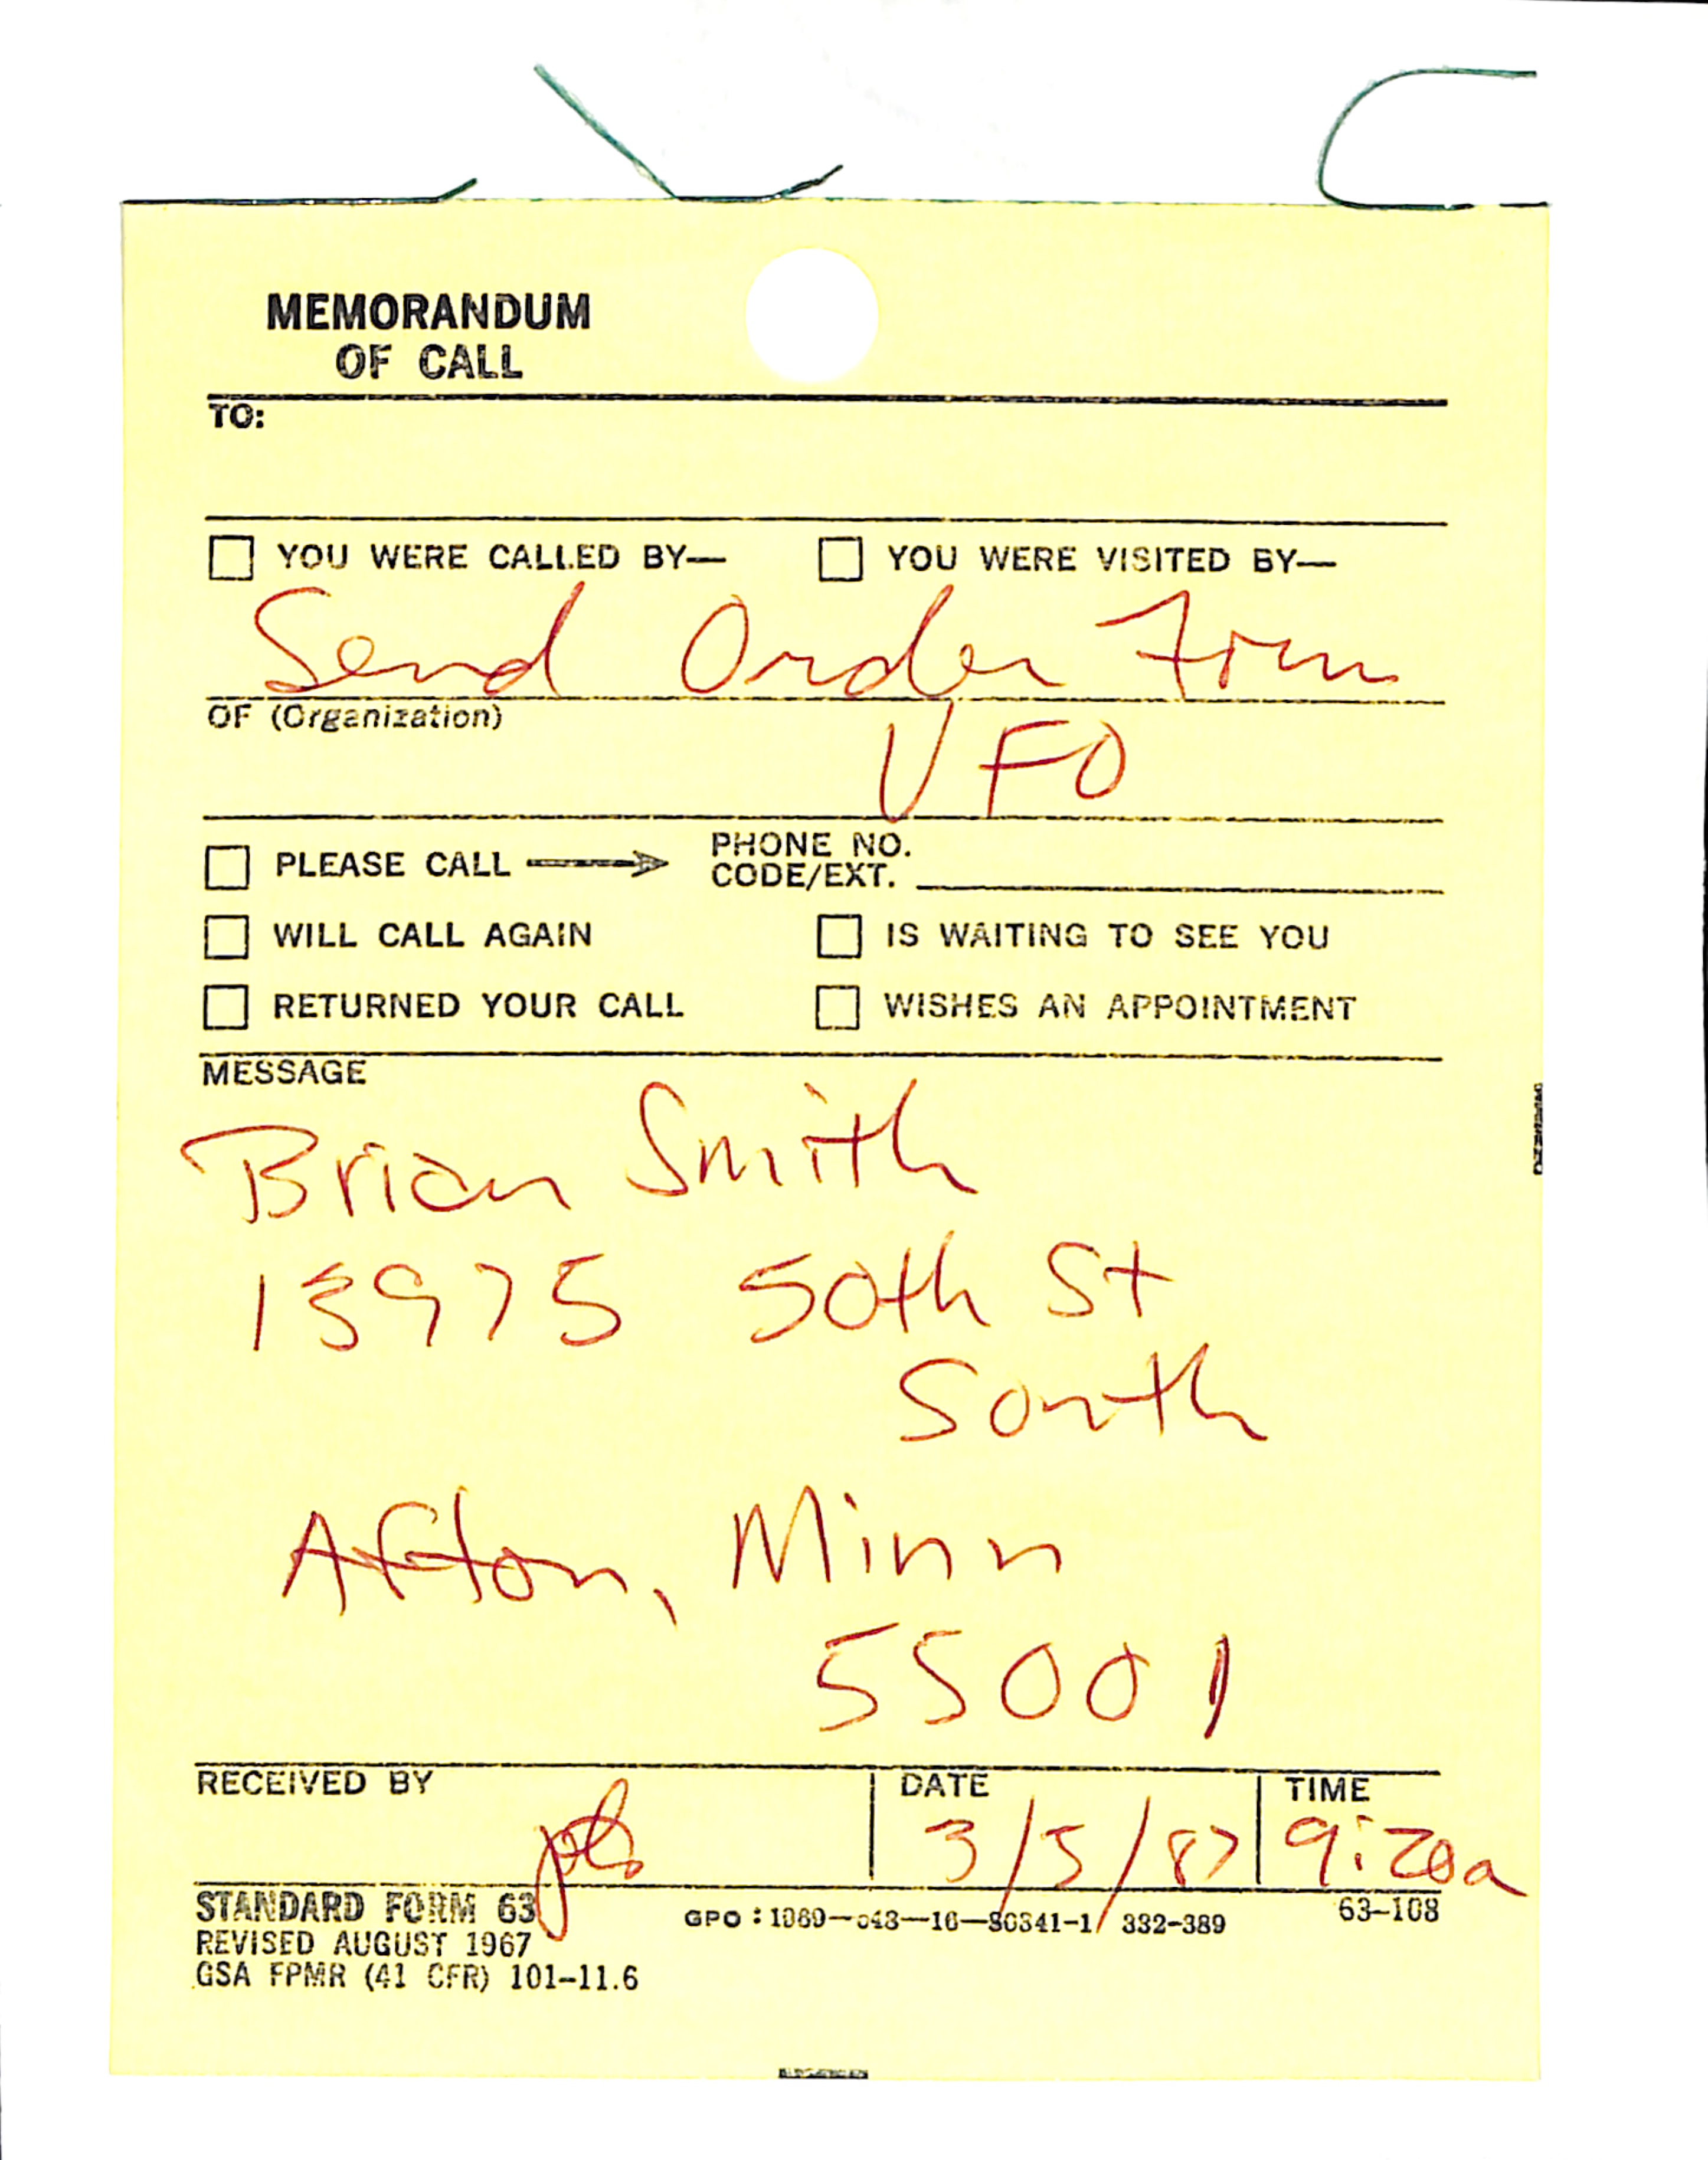 MEMORANDUM
OF CALL
TO:
YOU WERE CALLED BY— YOU WERE VISITED BY—
Send Order Form
OF (Organization)
UFO
PLEASE CALL → PHONE NO.
CODE/EXT.
WILL CALL AGAIN IS WAITING TO SEE YOU
RETURNED YOUR CALL WISHES AN APPOINTMENT
MESSAGE
Brian Smith
13975 50th St
South
Afton, Minn
55001
RECEIVED BY DATE TIME
3/5/87 9:20a
STANDARD FORM 63
GPO : 332-389 63-108
REVISED AUGUST 1967
GSA FPMR (41 CFR) 101-11.6